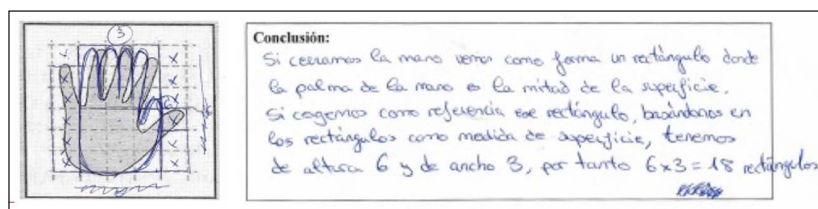 3
Conclusión:
Si cerramos la mano vemos como forma un rectángulo donde
la palma de la mano es la mitad de la superficie.
Si cogemos como referencia ese rectángulo, basándonos en
los rectángulos como medida de superficie, tenemos
de altura 6 y de ancho 3, por tanto 6x3 = 18 rectángulos